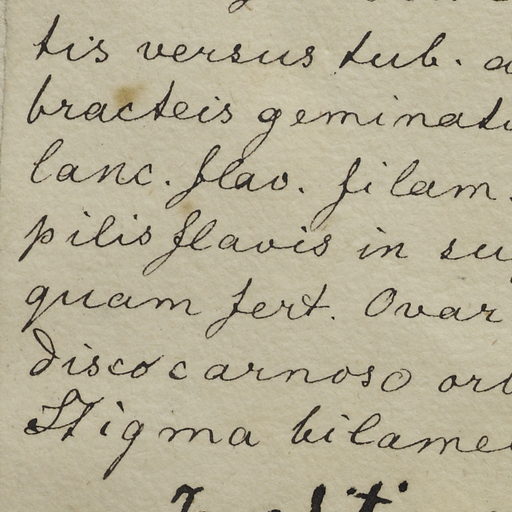 tis versus tub. a
bracteis geminat
lanc. flav. filam.
pilis flavis in su
quam fert. Ovar
disco carnoso orb
Stigma bilame